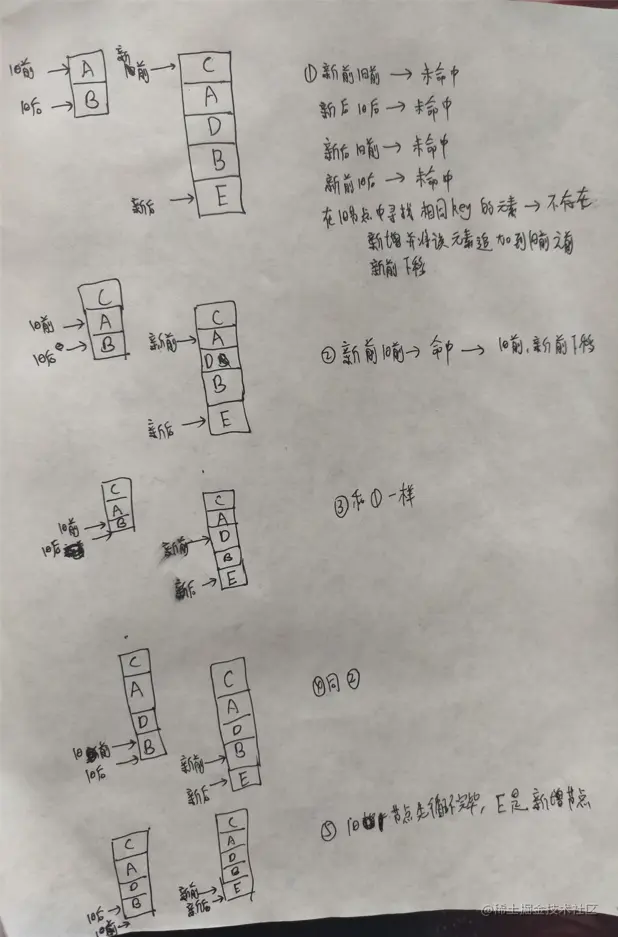 旧前 → A
旧后 → B
新前 → C
A
D
B
新后 → E
① 新前旧前 → 未命中
新后旧后 → 未命中
新后旧前 → 未命中
新前旧后 → 未命中
在旧节点中寻找相同key的元素 → 不存在
新增并将该元素追加到旧前之前
新前下移
C
旧前 → A
旧后 → B
C
新前 → A
D
B
新后 → E
② 新前旧前 → 命中 → 旧前,新前下移
C
A
旧前 → B
旧后 →
C
A
新前 → D
B
新后 → E
③ 和①一样
C
A
D
旧前 → B
旧后 →
C
A
D
新前 → B
新后 → E
④ 同②
C
A
D
旧后 → B
旧前 →
C
A
D
B
新前 → E
新后 →
⑤ 旧节点先循环完毕, E是新增节点
@稀土掘金技术社区